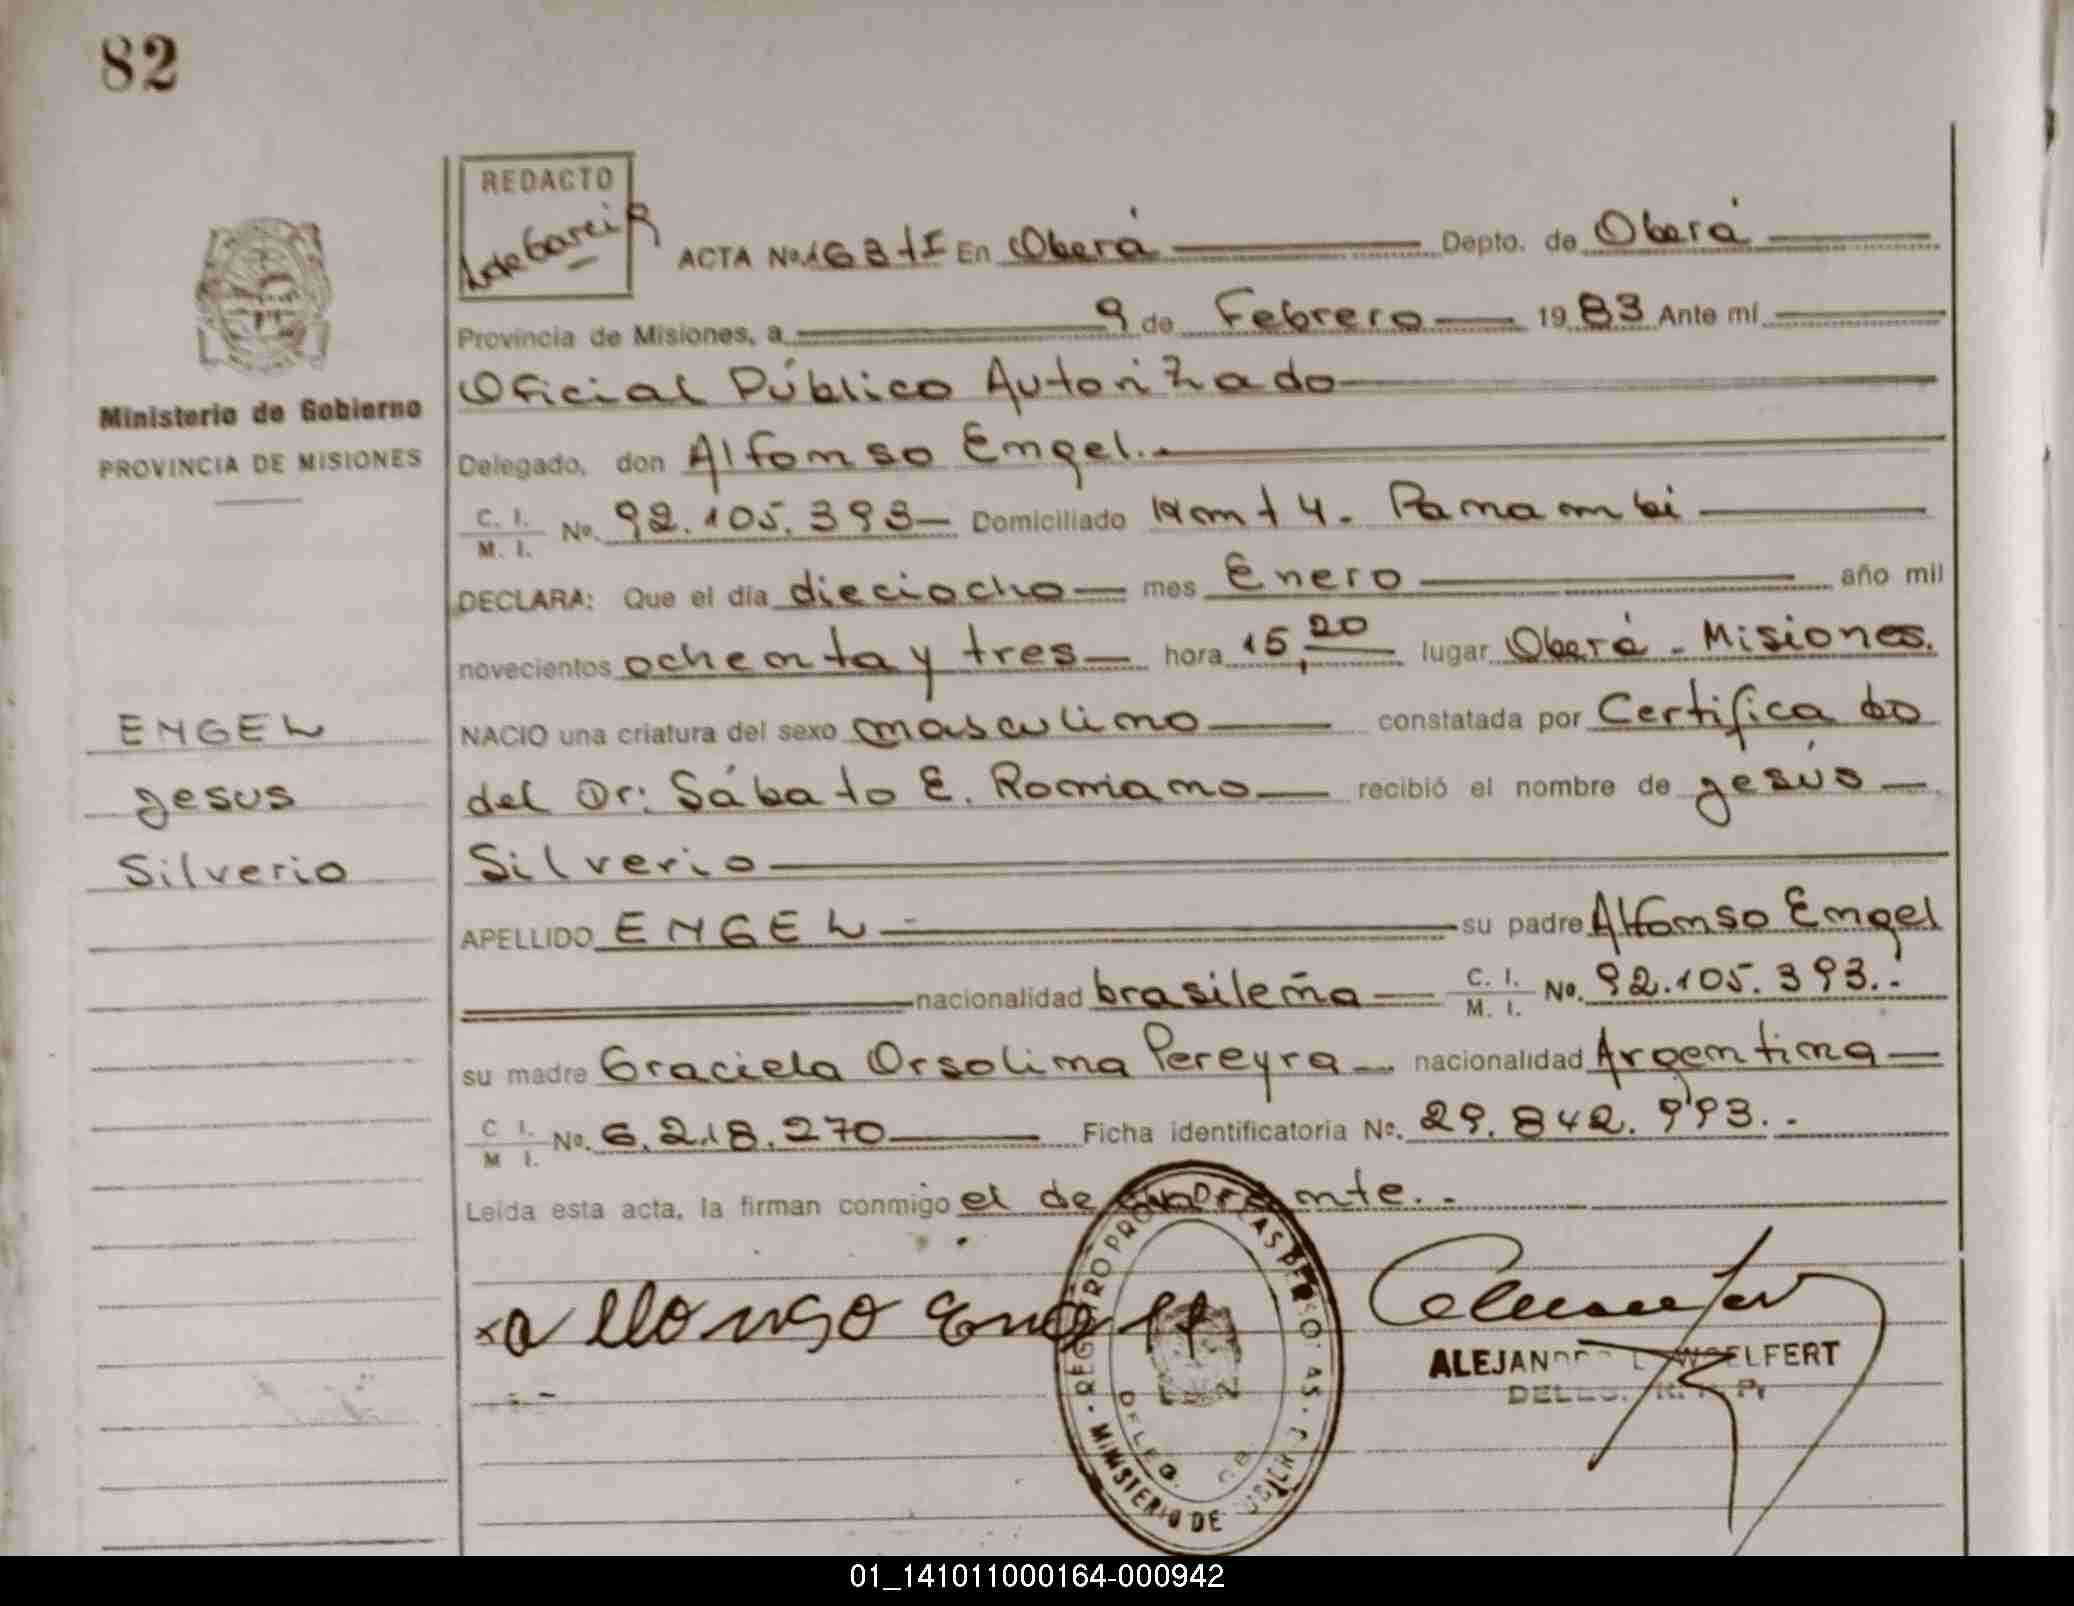 82
REDACTO
ACTA No. 163 tI En Oberá Depto. de Oberá
Provincia de Misiones, a 9 de Febrero 1983 Ante mí
Oficial Público Autorizado
Ministerio de Gobierno
PROVINCIA DE MISIONES
Delegado, don Alfonso Engel.-
C. I.
M. I. No. 92.105.393 Domiciliado Km t 4. Panambi
DECLARA: Que el día dieciocho mes Enero año mil
novecientos ochenta y tres hora 15,20 lugar Oberá - Misiones.
ENGEL
NACIO una criatura del sexo masculino constatada por Certificado
Jesus
del Dr: Sábato E. Romano recibió el nombre de Jesús
Silverio
Silverio
APELLIDO ENGEL su padre Alfonso Engel
nacionalidad brasileña C. I. M. I. No. 92.105.393.-
su madre Graciela Orsolina Pereyra nacionalidad Argentina
C. I.
M. I. No. 6.218.270 Ficha identificatoria No. 29.842.993.-
Leída esta acta, la firman conmigo el de
REGISTRO PRO AS PERSONAS
MINISTERIO DE
DELEG.
WOELFERT
01_141011000164-000942